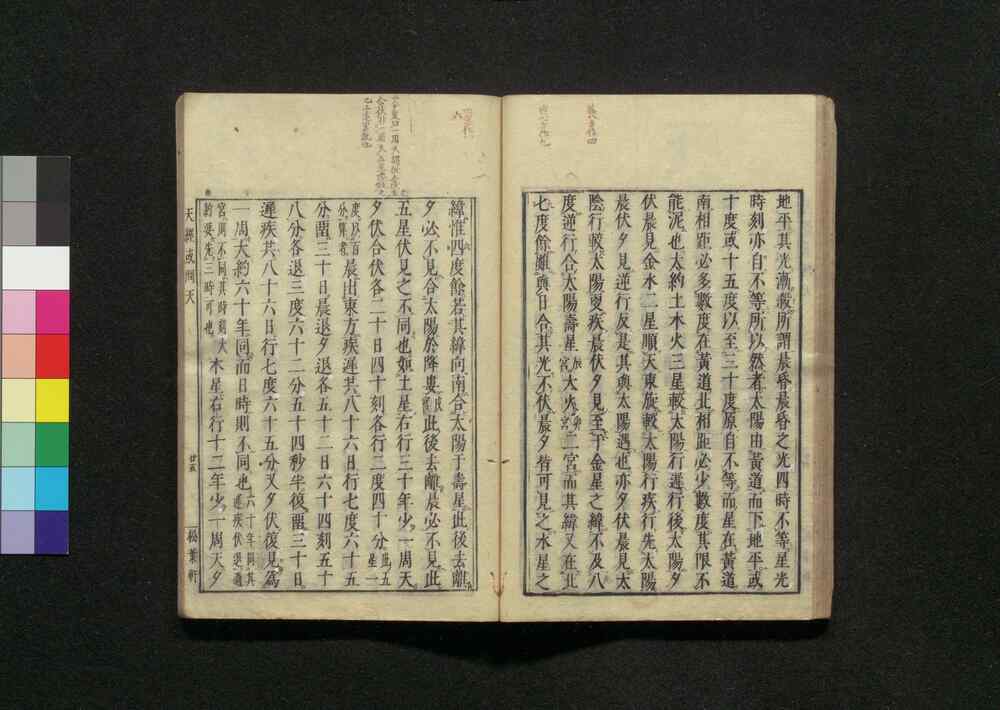 地平其光漸殺所謂晨昏晨昏之光四時不等星光
時刻亦自不等所以然者太陽由黃道而下地平或
十度或十五度以至三十度原自不等而星在黃道
南相距必多數度在黃道北相距必少數度其限不
能泥也大約土木火三星較太陽行遲行後太陽夕
伏晨見金水二星順天東旋較太陽行疾行先太陽
晨伏夕見逆行反是其與太陽遇也亦夕伏晨見太
陰行較太陽更疾晨伏夕見至于金星之緯不及八
度逆行合太陽壽星辰宮大火卯宮二宮而其緯又在北
七度餘離與日合其光不伏晨夕皆可見之水星之
緯惟四度餘若其緯向南合太陽于壽星此後去離
夕必不見合太陽於降婁戌宮此後去離晨必不見此
五星伏見之不同也如土星右行三十年少一周天
夕伏合伏各二十日四十刻各行二度四十分此五星一
度以百分算者晨出東方疾遲共八十六日行七度六十五
分留三十日晨退夕退各五十二日六十四刻五十
八分各退三度六十二分五十四秒半復留三十日
遲疾共八十六日行七度六十五分又夕伏復見為
一周天約六十年同而日時則不同也六十年同其遲疾伏退過
宮則不同其時刻大約要先三時可也木星右行十二年少一周天夕
天經或問天
廿五
松葉軒